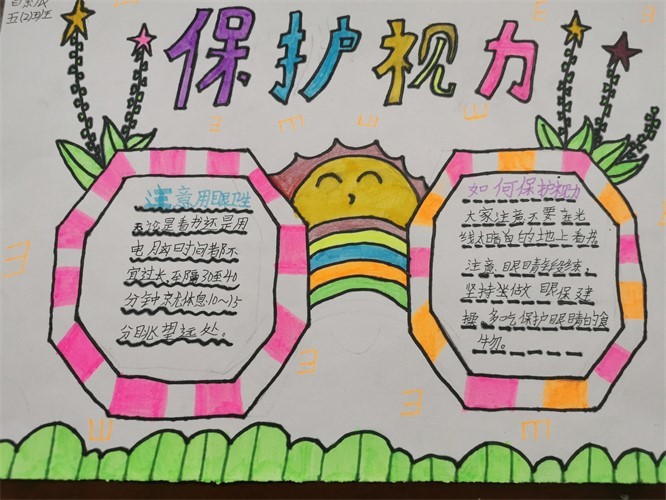 五(2)班
保护视力
注意用眼卫生
无论是看书还是用
电脑时间都不
宜过长、至隔30至40
分钟就休息10~15
分眺望远处。
如何保护视力
大家注意不要在光
线太暗的地上看书
注意、眼睛
坚持做眼保建
操、多吃保护眼睛的食
物。